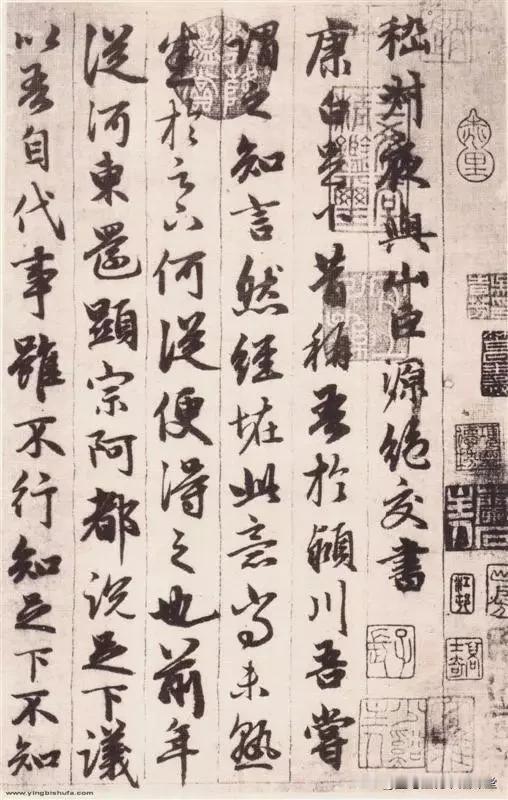 嵇叔夜與山巨源絕交書
康白足下昔稱吾於潁川吾嘗
謂之知言然經恠此意尚未熟
悉於足下何從便得之也前年
從河東還顯宗阿都說足下議
以吾自代事雖不行知足下不知
江邨
www.yingbishufa.com